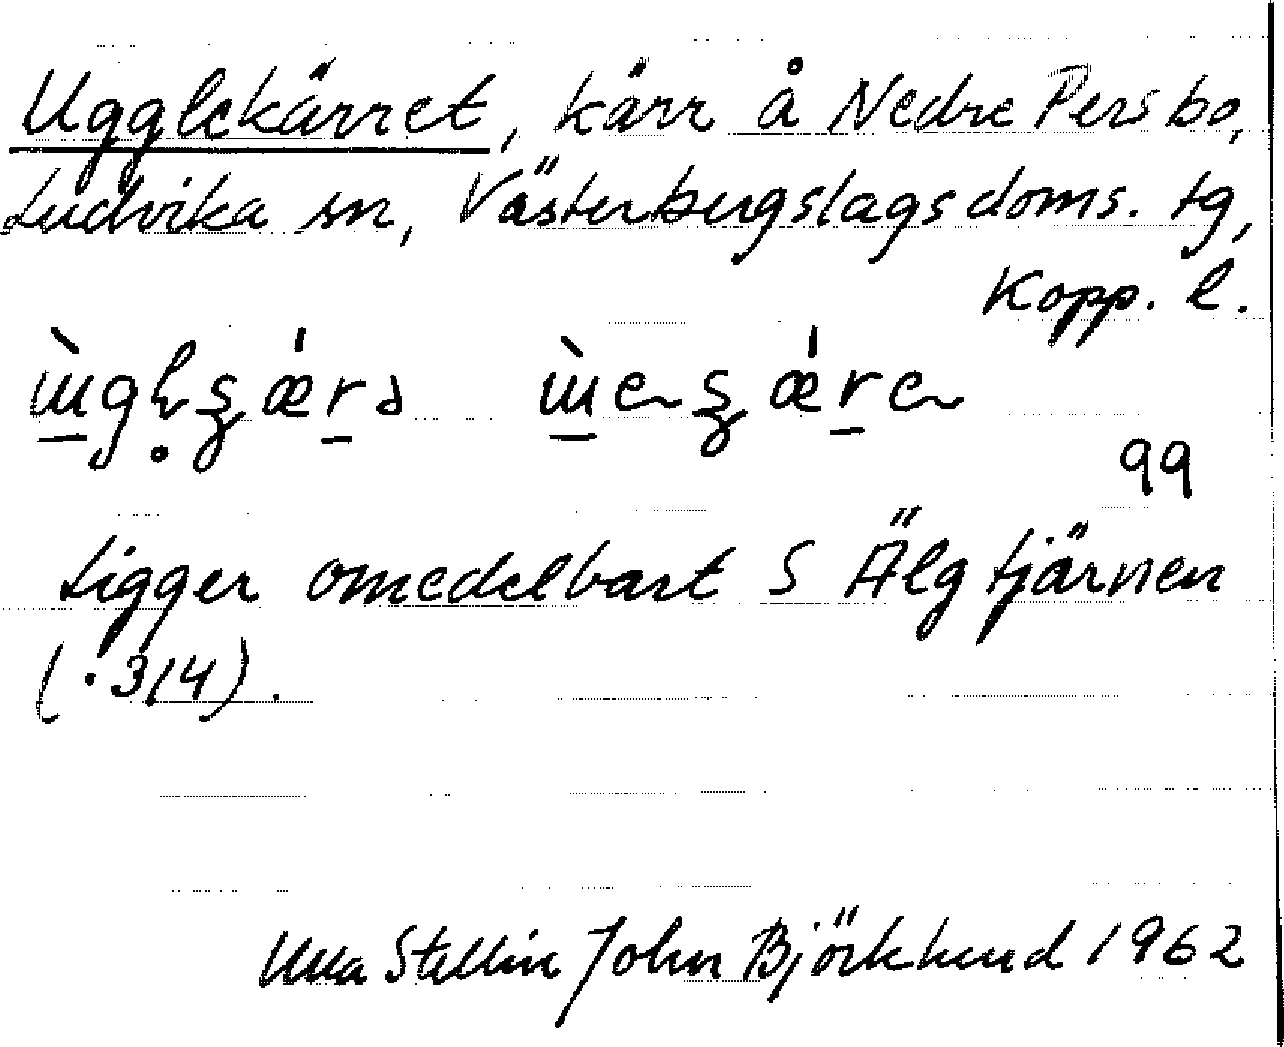 Ugglekärret, kärr å Nedre Persbo,
Ludvika sn, Västerbergslagsdoms. tg,
Kopp. l.
99
Ligger omedelbart S Älgtjärnen
(·314).
Ulla Stellin John Björklund 1962